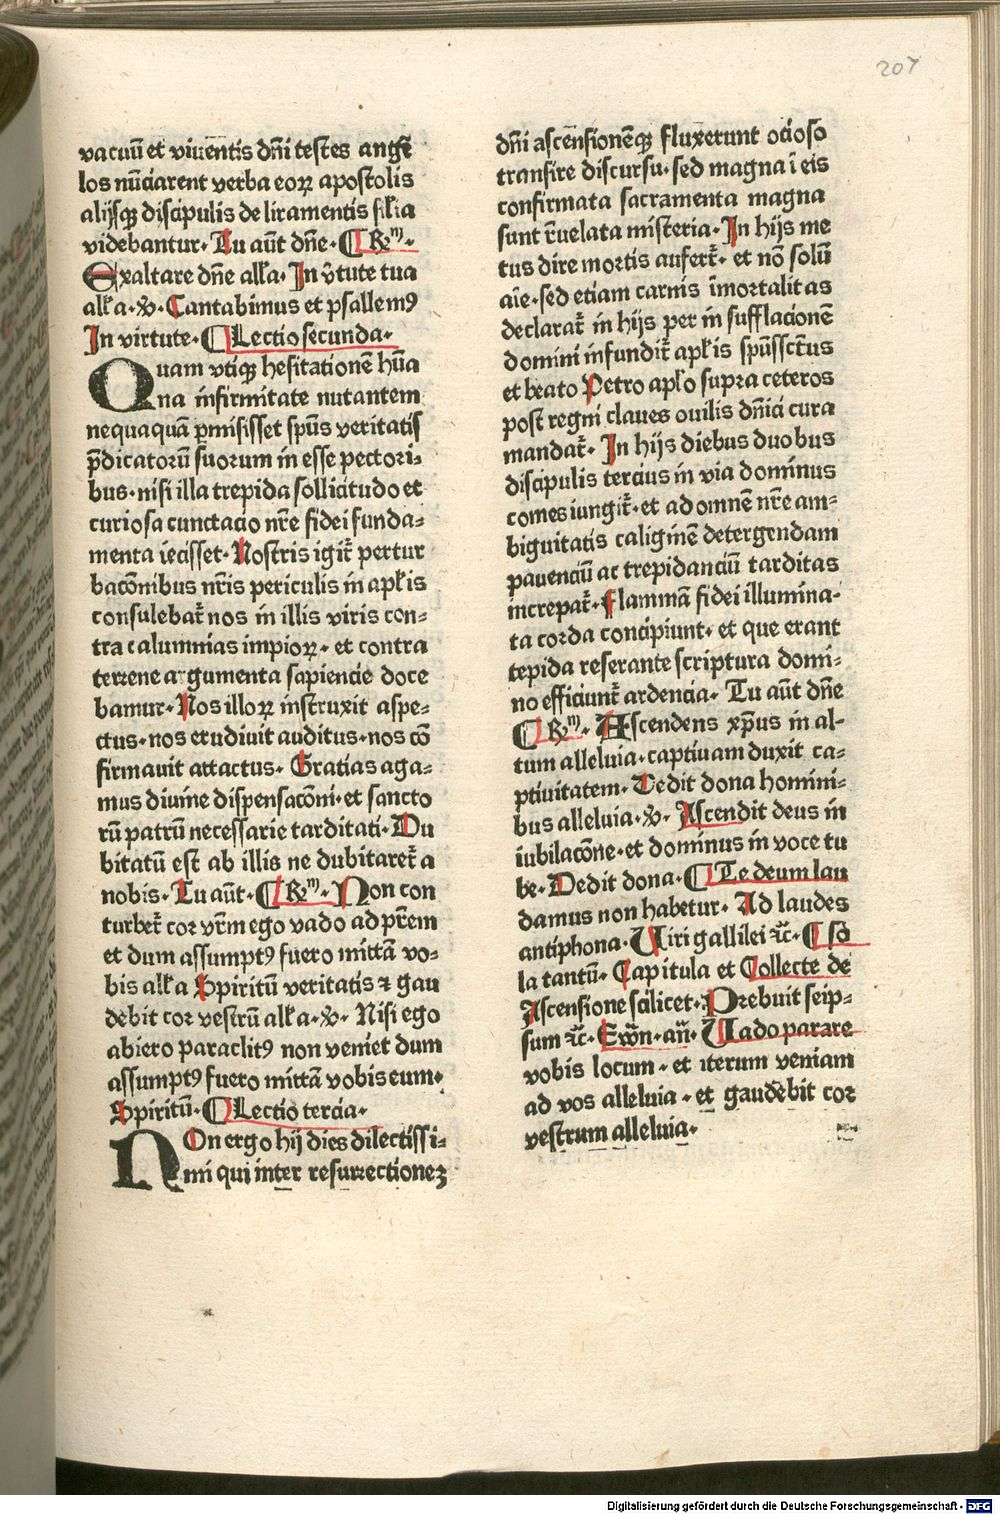 207
vacuū et viuentis dn̄i testes ange̅
los nūciarent verba eoꝝ apostolis
alijsqꝫ discipulis deliramentis silia
videbantur· Tu aūt dn̄e· ¶ Rm̄·
Exaltare dn̄e alla· In v̄tute tua
alla· ꝟ· Cantabimus et psallemꝰ
In virtute· ¶ Lectio secunda·
Quam vtiqꝫ hesitationē hūa
na infirmitate nutantem
nequaquā ꝑmisisset spūs veritatis
p̄dicatorū suorum in esse pectori⸗
bus· nisi illa trepida sollicitudo et
curiosa cunctacio nr̄e fidei funda⸗
menta iecisset· Nostris igit̄ pertur
bacōnibus nr̄is periculis in apl̄is
consulebat̄ nos in illis viris con⸗
tra calumnias impioꝝ· et contra
terrene argumenta sapiencie doce
bamur· Nos illoꝝ instruxit aspe⸗
ctus· nos erudiuit auditus· nos cō
firmauit attactus· Gratias aga⸗
mus diuine dispensacōni· et sancto
rū patrū necessarie tarditati· Du
bitatū est ab illis ne dubitaret̄ a
nobis· Tu aūt· ¶ Rm̄· Non con
turbet̄ cor vr̄m ego vado ad pr̄em
et dum assumptꝰ fuero mittā vo⸗
bis alla Spiritū veritatis ⁊ gau
debit cor vestrū alla· ꝟ· Nisi ego
abiero paraclitꝰ non veniet dum
assumptꝰ fuero mittā vobis eum·
Spiritū· ¶ Lectio tercia·
NOn ergo hij dies dilectissi⸗
mi qui inter resurrectioneꝫ
dn̄i ascensionēqꝫ fluxerunt ocioso
transire discursu· sed magna ī eis
confirmata sacramenta magna
sunt r̄uelata misteria· In hijs me
tus dire mortis aufert̄· et nō solū
aīe· sed etiam carnis īmortalitas
declarat̄ in hijs per insufflacionē
domini infundit̄ apl̄is spūssct̄us
et beato Petro apl̄o supra ceteros
post regni claues ouilis dn̄ici cura
mandat̄· In hijs diebus duobus
discipulis tercius in via dominus
comes iungit̄· et ad omnē nr̄e am⸗
biguitatis caliginē detergendam
pauenciū ac trepidanciū tarditas
increpat̄· Flammā fidei illumina⸗
ta corda concipiunt· et que erant
tepida reserante scriptura domi⸗
no efficiunt̄ ardencia· Tu aūt dn̄e
¶ Rm̄· Ascendens xp̄us in al⸗
tum alleluia· captiuam duxit ca⸗
ptiuitatem· Dedit dona homini⸗
bus alleluia· ꝟ· Ascendit deus in
iubilacōne· et dominus in voce tu
be· Dedit dona· ¶ Te deum lau
damus non habetur· Ad laudes
antiphona· Uiri gallilei ⁊c̄· ¶ so
la tantū· Capitula et Collecte de
Ascensione scilicet· Prebuit seip⸗
sum ⁊c̄· Ewn̄· an̄· Uado parare
vobis locum· et iterum veniam
ad vos alleluia· et gaudebit cor
vestrum alleluia·
Digitalisierung gefördert durch die Deutsche Forschungsgemeinschaft - DFG